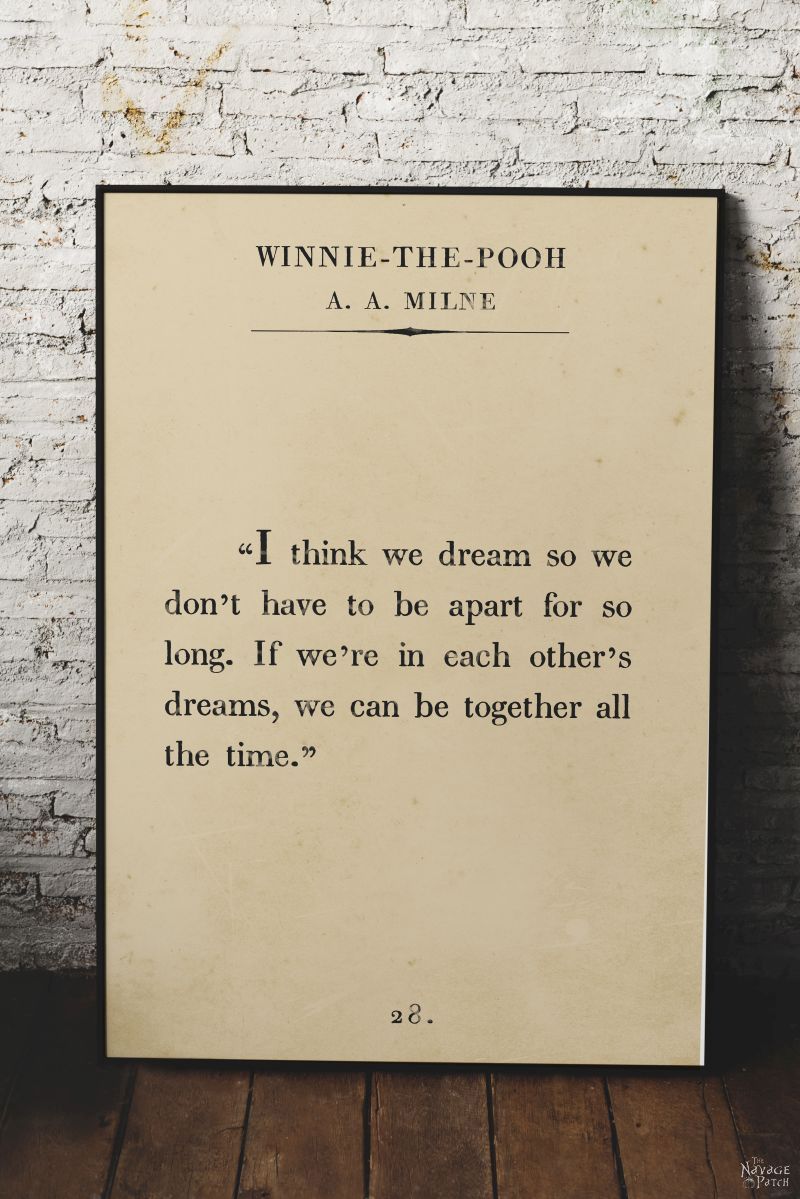 WINNIE-THE-POOH
A. A. MILNE
“I think we dream so we
don’t have to be apart for so
long. If we’re in each other’s
dreams, we can be together all
the time.”
28.
THE
NAVAGE
PATCH